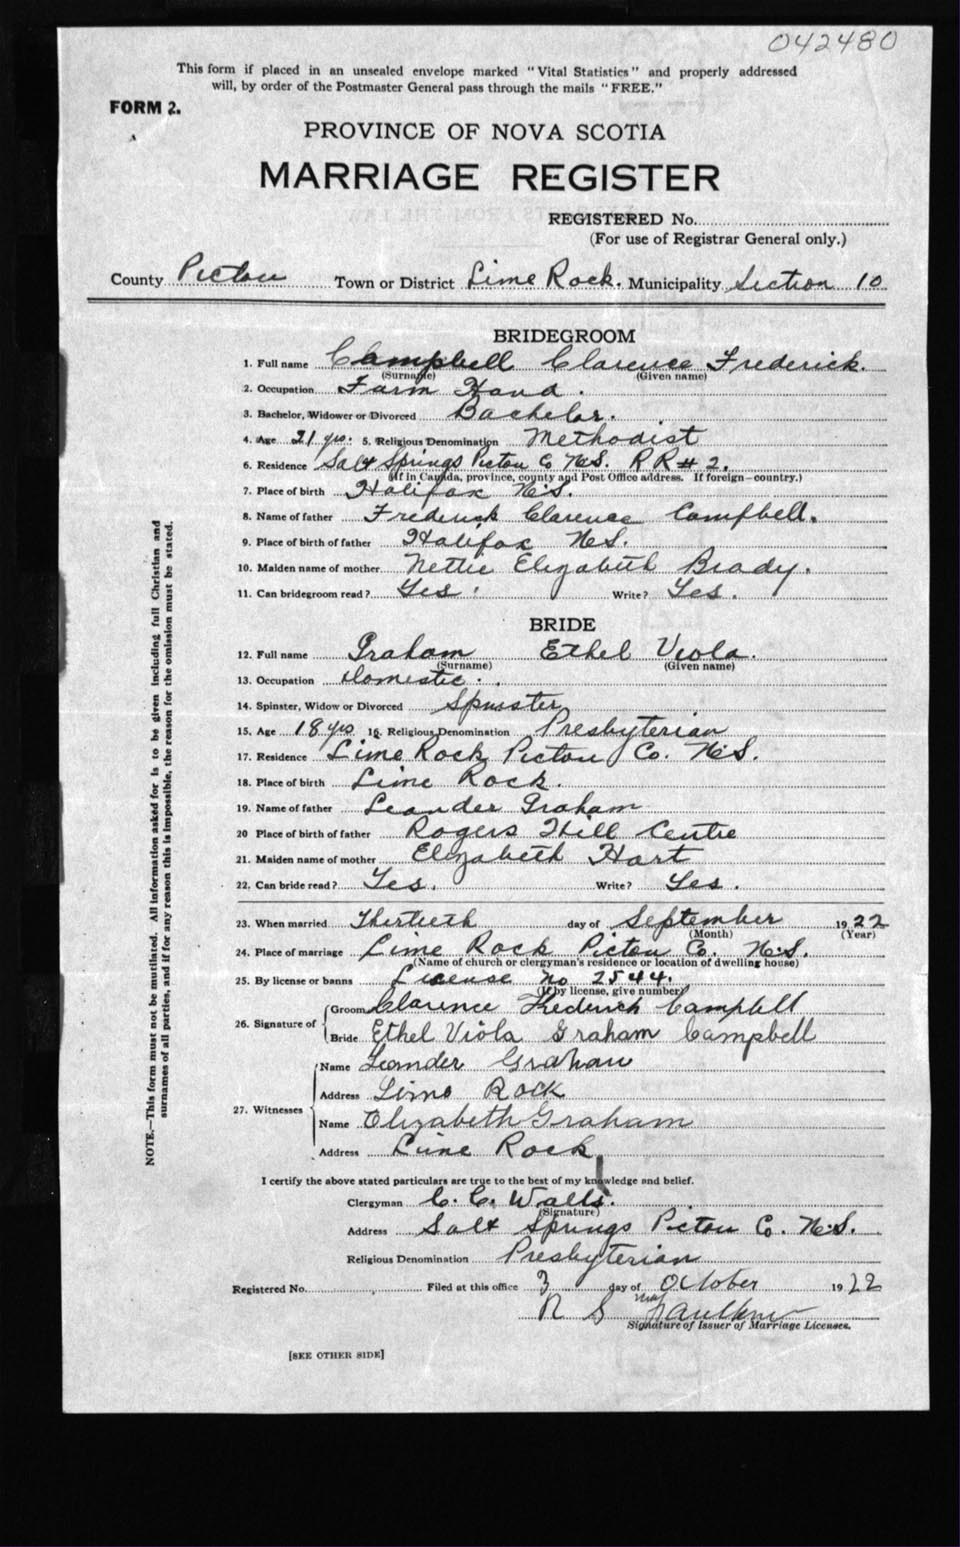 042480
This form if placed in an unsealed envelope marked "Vital Statistics" and properly addressed
will, by order of the Postmaster General pass through the mails "FREE."
FORM 2.
PROVINCE OF NOVA SCOTIA
MARRIAGE REGISTER
REGISTERED No.
(For use of Registrar General only.)
County Pictou Town or District Lime Rock. Municipality Section 10
BRIDEGROOM
1. Full name Campbell Clarence Frederick.
(Surname) (Given name)
2. Occupation Farm Hand.
3. Bachelor, Widower or Divorced Bachelor.
4. Age 21 yrs. 5. Religious Denomination Methodist
6. Residence Salt Springs Pictou Co N.S. R R # 2.
(If in Canada, province, county and Post Office address. If foreign—country.)
7. Place of birth Halifax N.S.
8. Name of father Frederick Clarence Campbell.
9. Place of birth of father Halifax N.S.
10. Maiden name of mother Nettie Elizabeth Brady.
11. Can bridegroom read? Yes. Write? Yes.
BRIDE
12. Full name Graham Ethel Viola.
(Surname) (Given name)
13. Occupation Domestic.
14. Spinster, Widow or Divorced Spinster
15. Age 18 yrs 16. Religious Denomination Presbyterian
17. Residence Lime Rock Pictou Co. N.S.
18. Place of birth Lime Rock.
19. Name of father Leander Graham
20 Place of birth of father Rogers Hill Centre
21. Maiden name of mother Elizabeth Hart
22. Can bride read? Yes. Write? Yes.
23. When married Thirtieth day of September 1922
(Month) (Year)
24. Place of marriage Lime Rock Pictou Co. N.S.
(Name of church or clergyman's residence or location of dwelling house)
25. By license or banns License no 2544.
(If by license, give number)
26. Signature of Groom Clarence Frederick Campbell
Bride Ethel Viola Graham Campbell
27. Witnesses Name Leander Graham
Address Lime Rock
Name Elizabeth Graham
Address Lime Rock
I certify the above stated particulars are true to the best of my knowledge and belief.
Clergyman C. C. Walls.
(Signature)
Address Salt Springs Pictou Co. N.S.
Religious Denomination Presbyterian
Registered No. Filed at this office 3 day of October 1922
R S Faulkner
Signature of Issuer of Marriage Licenses.
[SEE OTHER SIDE]
NOTE.—This form must not be mutilated. All information asked for is to be given including full Christian and
surnames of all parties, and if for any reason this is impossible, the reason for the omission must be stated.